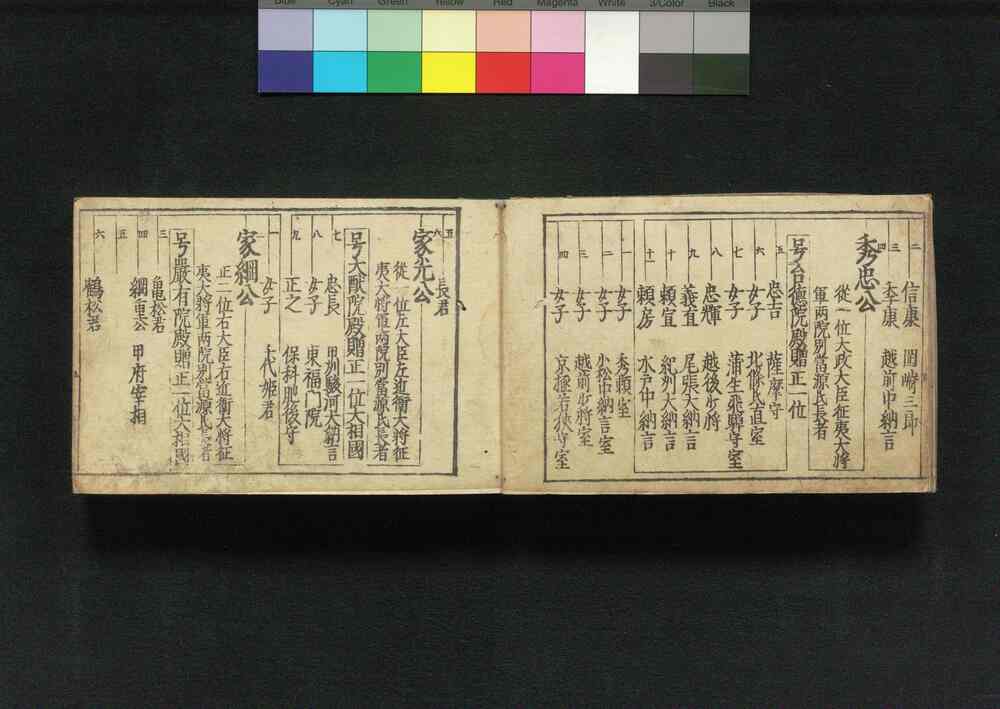 Blue Cyan Green Yellow Red Magenta White 3/Color Black
二 信康 岡崎三郎
三 秀康 越前中納言
四 秀忠公
從一位太政大臣征夷大将
軍両院別當源氏長者
号台德院殿贈正一位
五 忠吉 薩摩守
六 女子 北條氏直室
七 女子 蒲生飛騨守室
八 忠輝 越後少將
九 義直 尾張大納言
十 頼宣 紀刕大納言
十一 頼房 水戸中納言
一 女子 秀頼室
二 女子 小松中納言室
三 女子 越前少將室
四 女子 京極若狹守室
五 長君
六 家光公
從一位左大臣左近衛大将征
夷大将軍両院別當源氏長者
号大猷院殿贈正一位大相國
七 忠長 甲州駿河大納言
八 女子 東福門院
九 正之 保科肥後守
一 女子 千代姫君
家綱公
正二位右大臣右近衛大将征
夷大将軍両院別當源氏長者
号嚴有院殿贈正一位大相國
三 亀松君
四 綱重公 甲府宰相
五
六 鶴松君